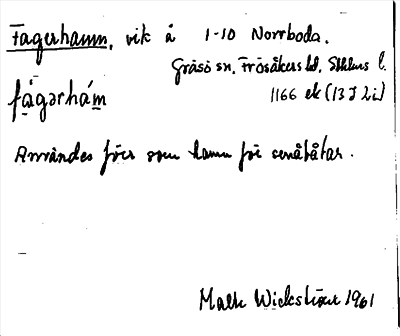 Fagerhamn, vik å 1-10 Norrboda.
Gräsö sn, Frösåkers hd, Sthlms l.
fágərhám̲ 1166 ek (13 I 2 i)
Användes förr som hamn för småbåtar.
Malte Wickström 1961